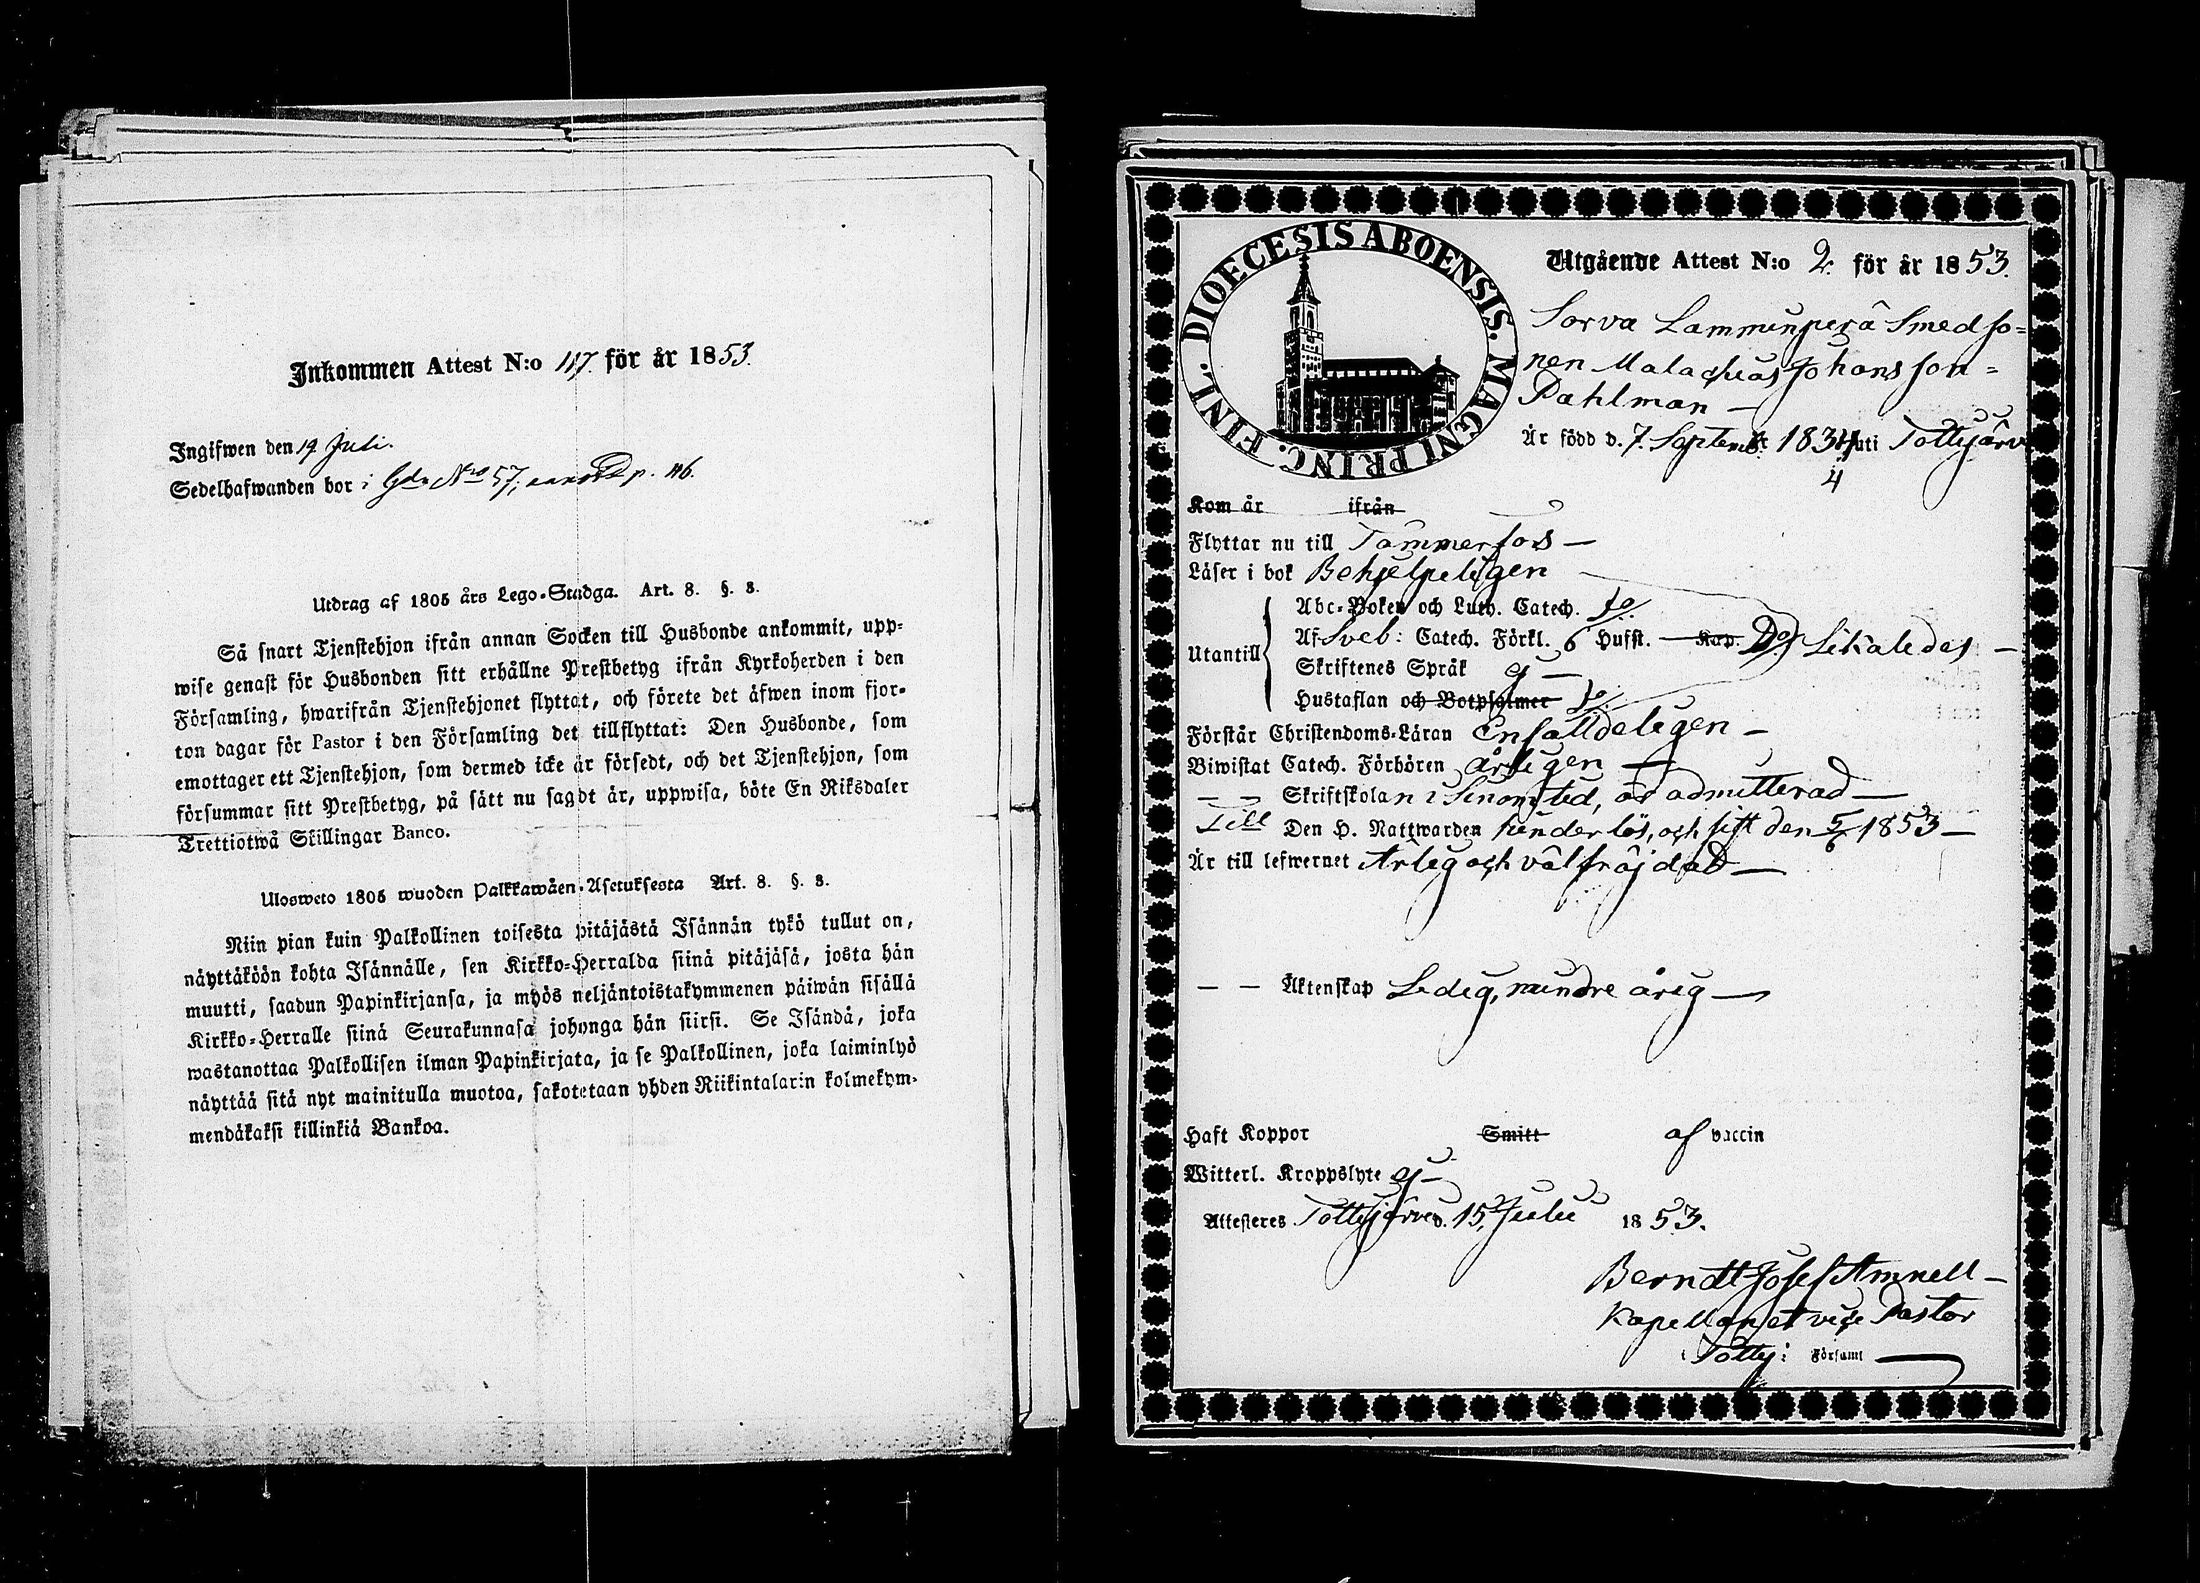 Inkommen Attest N:o 117. för år 1853.
Ingifwen den 19 Juli.
Sedelhafwanden bor i Gdn Nro 57; p. 116.
Utdrag af 1805 års Lego-Stadga. Art. 8. §. 3.
Så snart Tjenstehjon ifrån annan Socken till Husbonde ankommit, upp-
wise genast för Husbonden sitt erhållne Prestbetyg ifrån Kyrkoherden i den
Församling, hwarifrån Tjenstehjonet flyttat, och förete det äfwen inom fjor-
ton dagar för Pastor i den Församling det tillflyttat: Den Husbonde, som
emottager ett Tjenstehjon, som dermed icke är försedt, och det Tjenstehjon, som
försummar sitt Prestbetyg, på sätt nu sagdt är, uppwisa, böte En Riksdaler
Trettiotwå Skillingar Banco.
Ulosweto 1805 wuoden Palkkawäen-Asetuksesta Art. 8. §. 3.
Niin pian kuin Palkollinen toisesta pitäjästä Isännän tykö tullut on,
näyttäköön kohta Isännälle, sen Kirkko-Herralda siinä pitäjäsä, josta hän
muutti, saadun Papinkirjansa, ja myös neljäntoistakymmenen päiwän sisällä
Kirkko-Herralle siinä Seurakunnasa johonga hän siirsi. Se Isändä, joka
wastanottaa Palkollisen ilman Papinkirjata, ja se Palkollinen, joka laiminlyö
näyttää sitä nyt mainitulla muotoa, sakotetaan yhden Riikintalarin kolmekym-
mendäkaksi killinkiä Bankoa.
DIOECESIS ABOENSIS. MAGNI PRINC. FINL.
Utgående Attest N:o 2. för år 1853.
Sorva Lammenperä Smedso=
nen Malachias Johansson=
Dahlman —
Är född d. 7. Septemb: 1834 uti Tottijärvi
4
Kom år ifrån
Flyttar nu till Tammerfors —
Läser i bok Behjelpeligen
Utantill
Abc-Boken och Luth. Catech. Jo/.
Af Sveb: Catech. Förkl. 6 Hufst. — Kap. Do/ Likaledes —
Skriftenes Språk ej —
Hustaflan och Botpsalmer Jo/.
Förstår Christendoms-Läran Enfalldeligen —
Biwistat Catech. Förhören årligen —
— — Skriftskolan i sinom tid, är admitterad —
Till Den H. Nattwarden hinderlös, och sist den 5/6 1853 —
Är till lefwernet Ärlig och välfräjdad —
— — Äktenskap Ledig, mindre årig —
Haft Koppor Smitt af vaccin
Witterl. Kroppslyte ej —
Attesteres Tottijärvi d. 15, Julii 1853.
Berndt Josef Amnell —
Kapellan et vice Pastor
i Tottij: Församl —